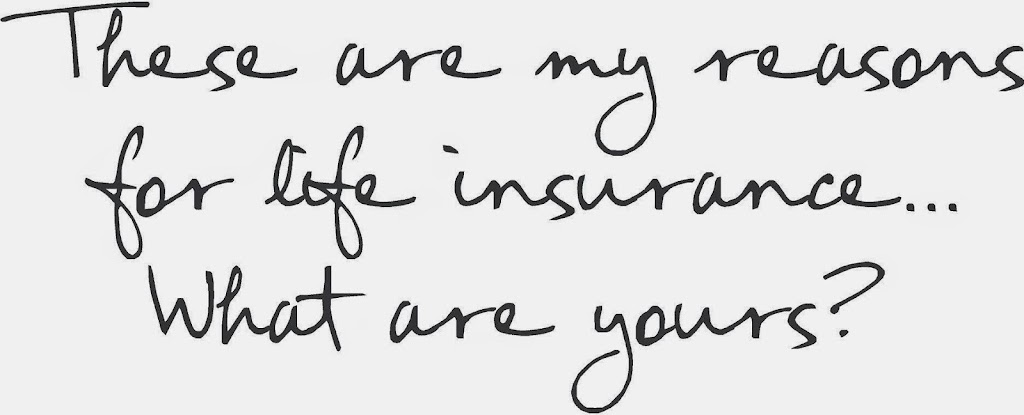 These are my reasons
for life insurance...
What are yours?